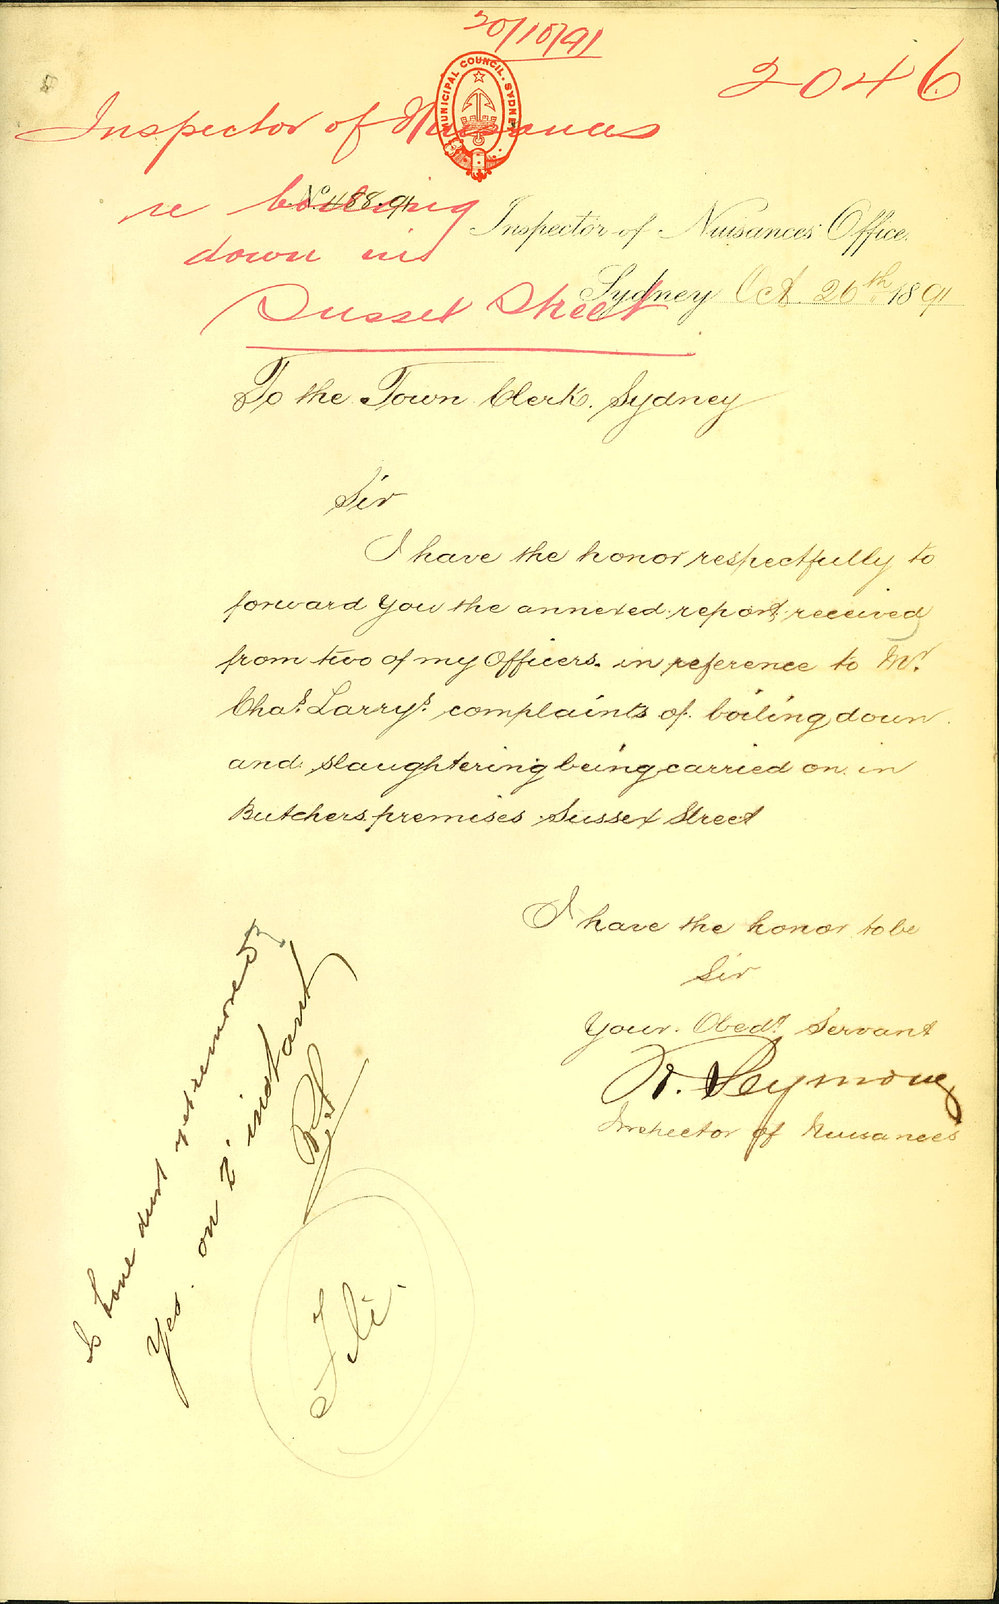 30/10/91
2046
MUNICIPAL COUNCIL. SYDNEY
Inspector of Nuisances
re boiling
down in
Sussex Street
No. 488.91
Inspector of Nuisances' Office.
Sydney Oct. 26th 1891
To the Town Clerk. Sydney
Sir
I have the honor respectfully to
forward you the annexed report received
from two of my Officers. in reference to Mr.
Chas. Larrys. complaints of boiling down
and slaughtering being carried on in
Butchers premises Sussex Street
I have the honor to be
Sir
Your Obedt. Servant
R. Seymour
Inspector of Nuisances
Is bone dust yet removed?
Yes. on 2nd instant
R.S.
File.